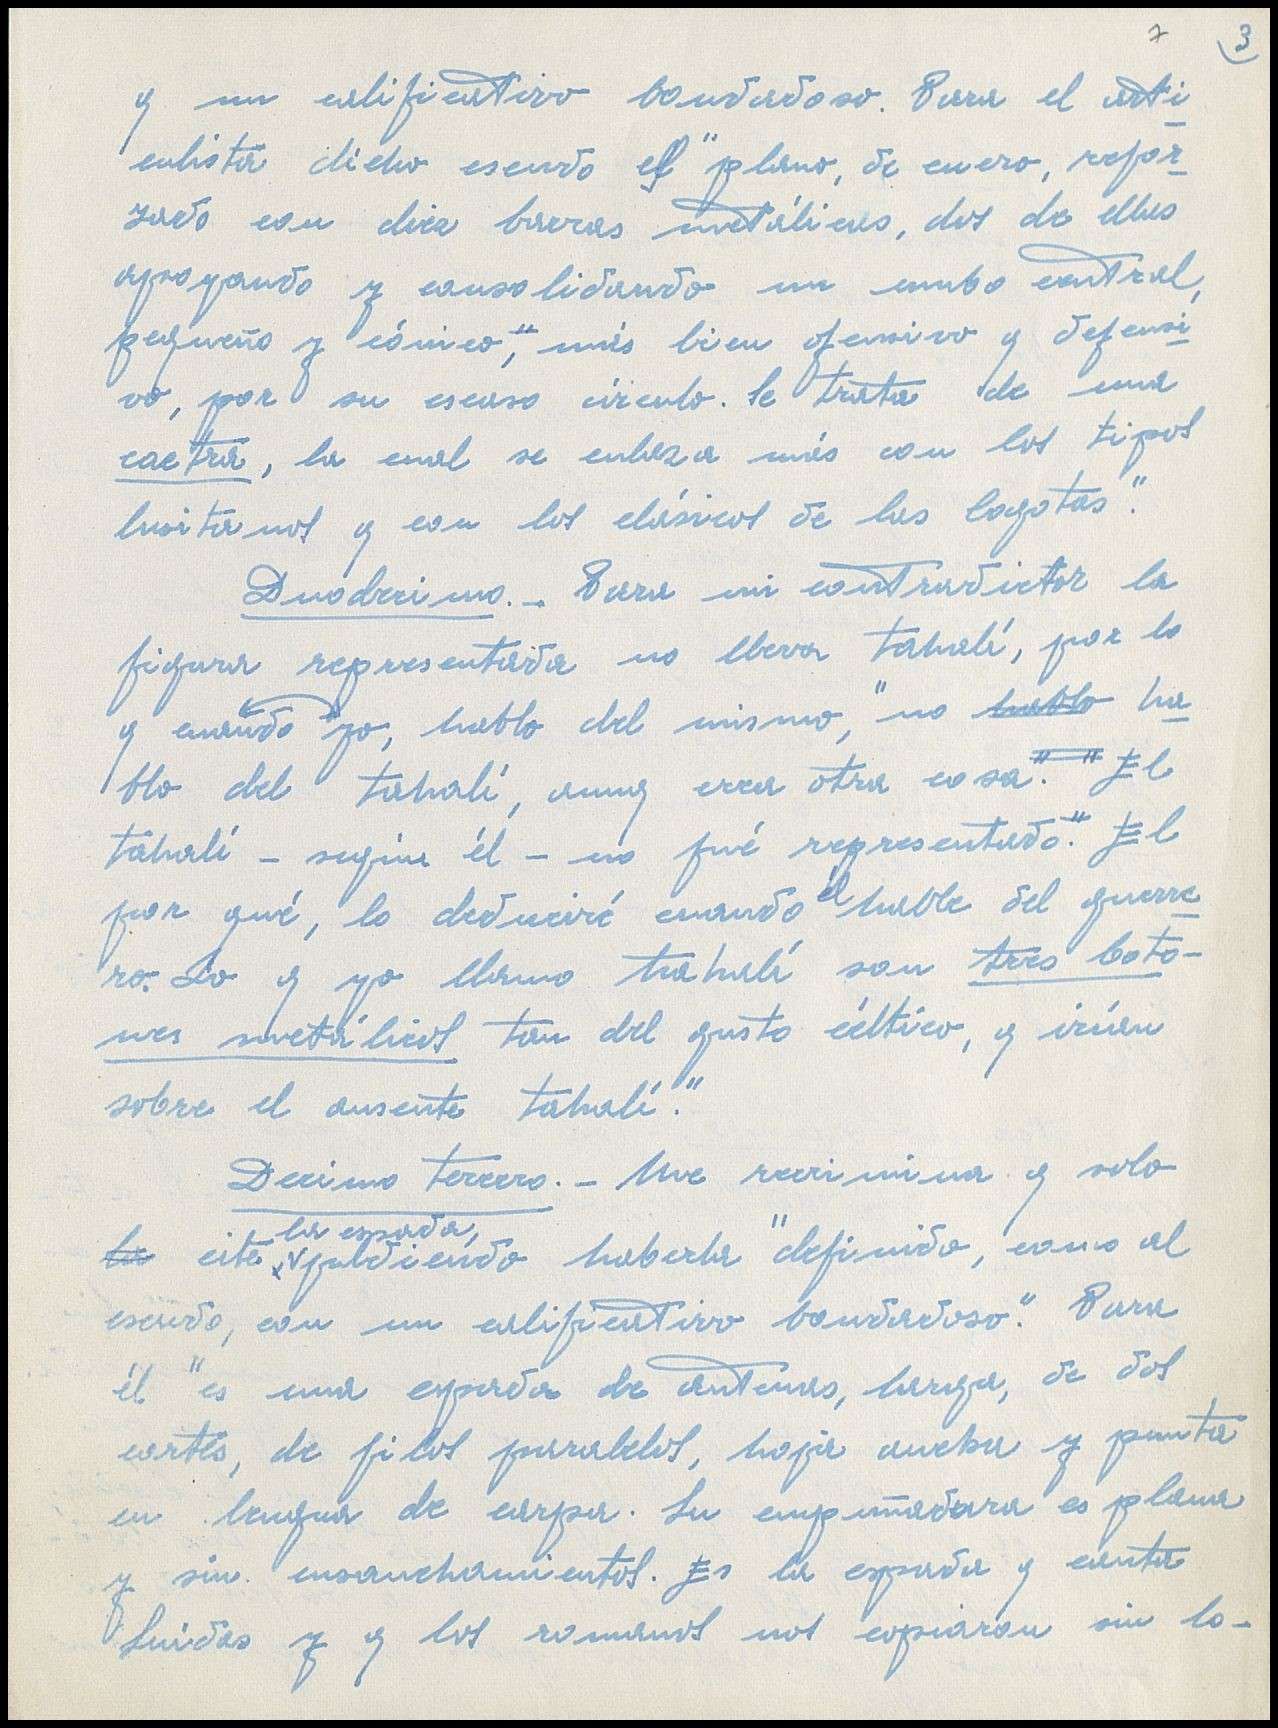 7 3
q un calificativo bondadoso. Para el arti
culista dicho escudo es "plano, de cuero, refor
zado con diez barras metálicas, dos de ellas
apoyando y consolidando un umbo central,
pequeño y cónico", más bien ofensivo q defensi
vo, por su escaso círculo. Se trata de una
caetra, la cual se enlaza más con los tipos
lusitanos q con los clásicos de las Cogotas".
Duodecimo.- Para mi contradictor la
figura representada no lleva tahalí, por lo
q cuando "yo, hablo del mismo, "no hablo ha
blo del tahalí, aunq crea otra cosa"." El
tahalí - según él - no fué representado." El
por qué, lo deduciré cuando él hable del guerre
ro. Lo q yo llamo tahalí son tres boto-
nes metálicos tan del gusto céltico, q irían
sobre el ausente tahalí."
Decimo tercero.- Me recrimina q solo
la espada,
la cite pudiendo haberla "definido, como al
escudo, con un calificativo bondadoso". Para
él "es una espada de antenas, larga, de dos
cortes, de filos paralelos, hoja ancha y punta
en lengua de carpa. Su empuñadura es plana
y sin ensanchamientos. Es la espada q canta
Suidas y q los romanos nos copiaron sin lo-